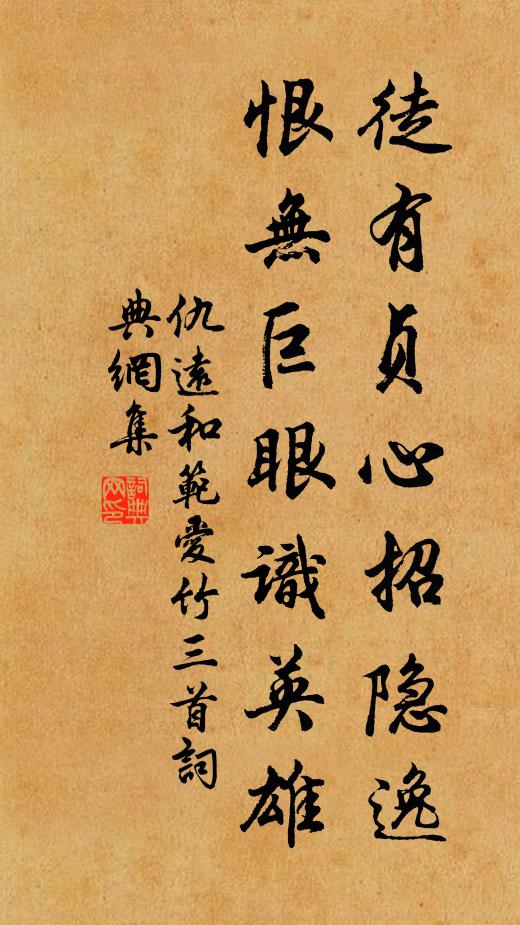 徒有贞心招隐逸
恨無巨眼識英雄
仇遠和範愛竹三首詞
典網集
詞典
网印